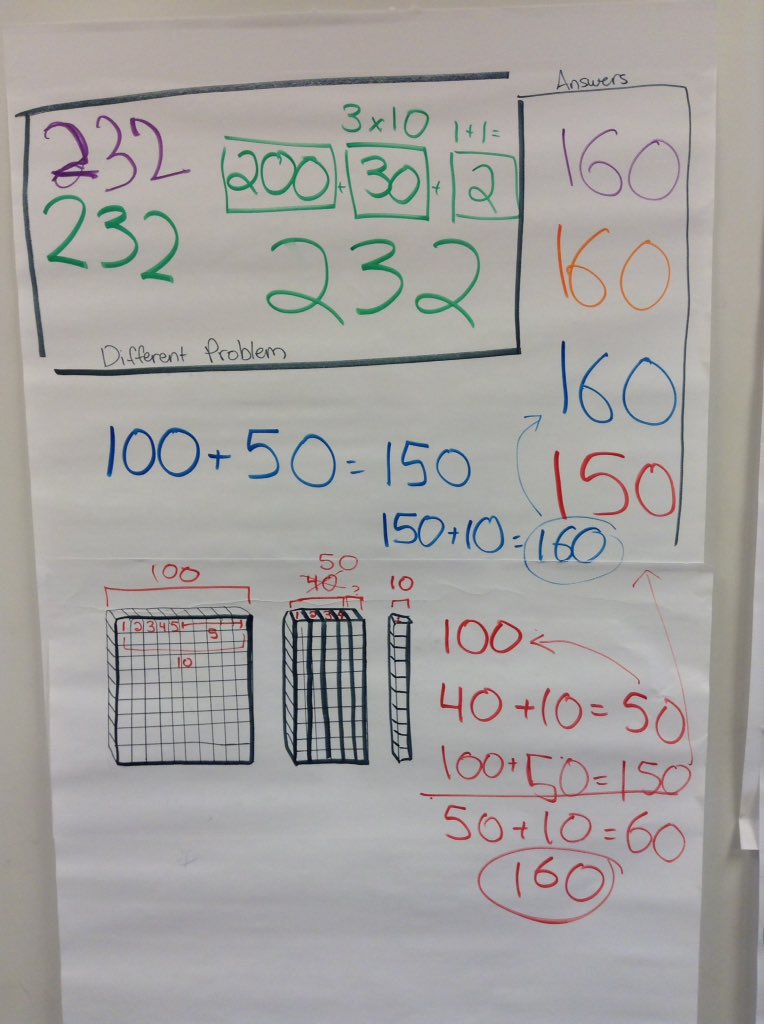 Answers
232
232
3 x 10
1 + 1 =
200 + 30 + 2
232
Different Problem
160
160
160
150
100 + 50 = 150
150 + 10 = 160
100
1 2 3 4 5
5
10
50
40
1 2 3 4
10
100
40 + 10 = 50
100 + 50 = 150
50 + 10 = 60
160